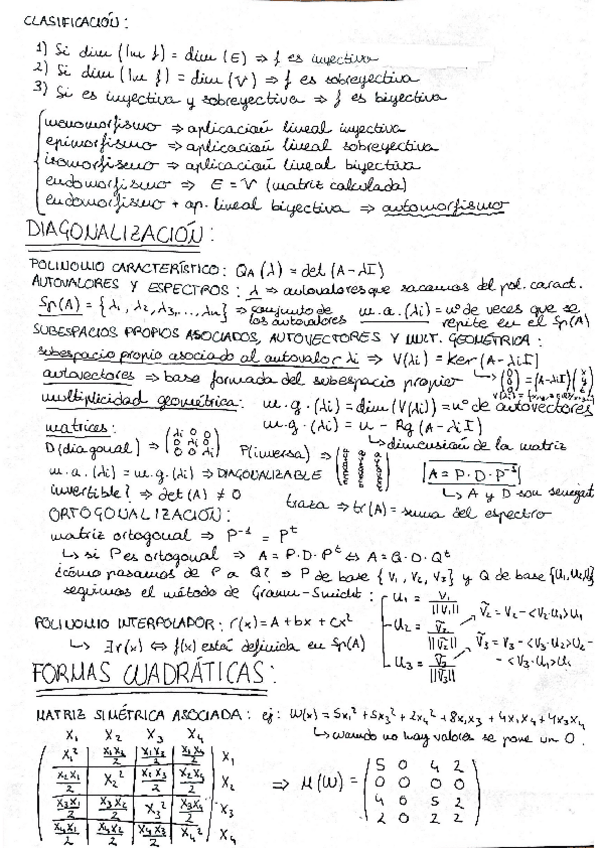 CLASIFICACIÓN:
1) Si dim (Im f) = dim (E) ⇒ f es inyectiva
2) Si dim (Im f) = dim (V) ⇒ f es sobreyectiva
3) Si es inyectiva y sobreyectiva ⇒ f es biyectiva
monomorfismo ⇒ aplicación lineal inyectiva
epimorfismo ⇒ aplicación lineal sobreyectiva
isomorfismo ⇒ aplicación lineal biyectiva
endomorfismo ⇒ E = V (matriz calculada)
endomorfismo + ap. lineal biyectiva ⇒ automorfismo
DIAGONALIZACIÓN:
POLINOMIO CARACTERÍSTICO: QA (λ) = det (A - λI)
AUTOVALORES Y ESPECTROS: λ ⇒ autovalores que sacamos del pol. caract.
Sp(A) = {λ1, λ2, λ3, ..., λn} ⇒ conjunto de los autovalores m.a. (λi) = nº de veces que se repite en el Sp(A)
SUBESPACIOS PROPIOS ASOCIADOS, AUTOVECTORES Y MULT. GEOMÉTRICA:
subespacio propio asociado al autovalor λi ⇒ V(λi) = Ker (A - λiI)
autovectores ⇒ base formada del subespacio propio ↳ (0 0 0) = (A - λiI) (x y z)
multiplicidad geométrica: m.g. (λi) = dim (V(λi)) = nº de autovectores
m.g. (λi) = n - Rg (A - λiI)
↳ dimensión de la matriz
matrices:
D (diagonal) ⇒ (λi 0 0 / 0 λi 0 / 0 0 λi) P (inversa) ⇒ A = P · D · P⁻¹
m.a. (λi) = m.g. (λi) ⇒ DIAGONALIZABLE ↳ A y D son semejant
invertible? ⇒ det (A) ≠ 0 traza ⇒ tr(A) = suma del espectro
ORTOGONALIZACIÓN:
matriz ortogonal ⇒ P⁻¹ = Pᵗ
↳ si P es ortogonal ⇒ A = P · D · Pᵗ ⇔ A = Q · D · Qᵗ
¿cómo pasamos de P a Q? ⇒ P de base {V1, V2, V3} y Q de base {U1, U2, U3}
seguimos el método de Gramm-Smicht:
U1 = V1 / ||V1||
U2 = Ṽ2 / ||Ṽ2|| Ṽ2 = V2 - <V2·U1>U1
U3 = Ṽ3 / ||Ṽ3|| Ṽ3 = V3 - <V3·U2>U2 - - <V3·U1>U1
POLINOMIO INTERPOLADOR: r(x) = A + bx + cx²
↳ ∃ r(x) ⇔ f(x) está definida en Sp(A)
FORMAS CUADRÁTICAS:
MATRIZ SIMÉTRICA ASOCIADA: ej: W(x) = 5x1² + 5x3² + 2x4² + 8x1x3 + 4x1x4 + 4x3x4
↳ cuando no hay valores se pone un 0.
X1 X2 X3 X4
X1² X1X2/2 X1X3/2 X1X4/2 X1
X2X1/2 X2² X2X3/2 X2X4/2 X2
X3X1/2 X3X2/2 X3² X3X4/2 X3
X4X1/2 X4X2/2 X4X3/2 X4² X4
⇒ M(W) =
5 0 4 2
0 0 0 0
4 0 5 2
2 0 2 2